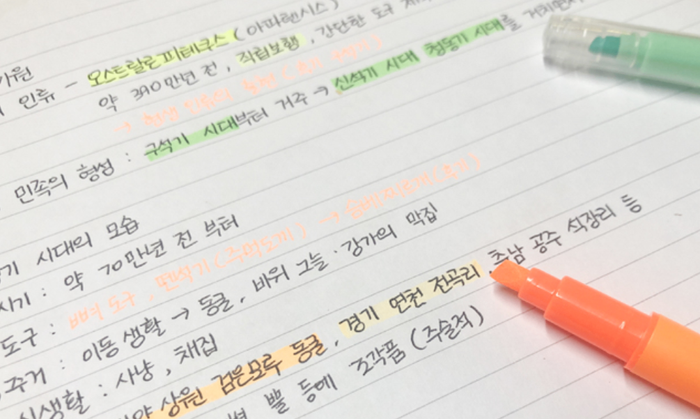 가원
인류 - 오스트랄로피테쿠스 (아파렌시스)
약 390만년 전, 직립보행, 간단한 도구
민족의 형성 : 구석기 시대부터 거주 → 신석기 시대 청동기 시대를 거치면서
기 시대의 모습
시기 : 약 70만년 전 부터
도구 : 뼈 도구, 뗀석기 (주먹도끼) →
주거 : 이동 생활 → 동굴, 바위 그늘·강가의 막집
식생활 : 사냥, 채집
상원 검은모루 동굴, 경기 연천 전곡리, 충남 공주 석장리 등
뿔 등에 조각품 (주술적)